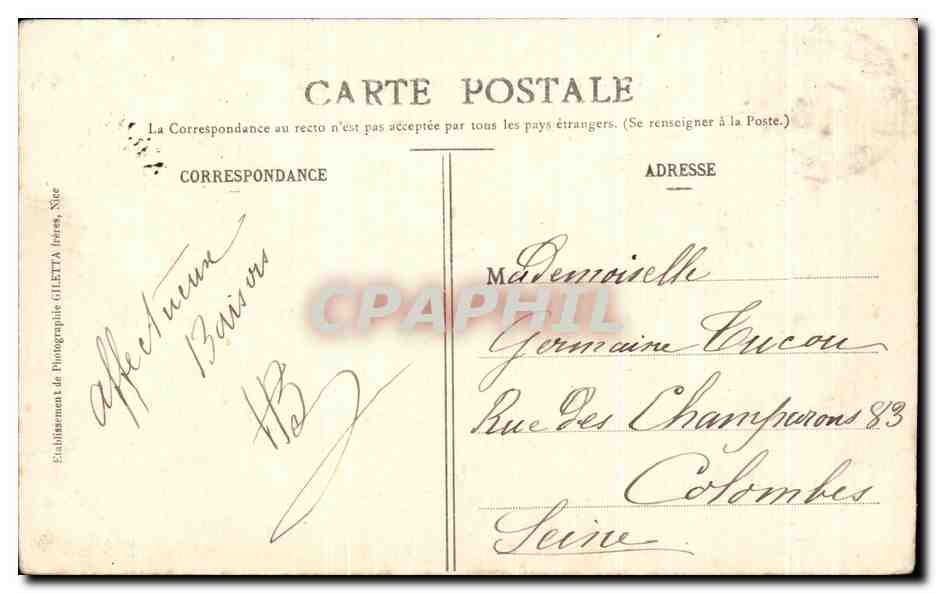 CARTE POSTALE
La Correspondance au recto n'est pas acceptée par tous les pays étrangers. (Se renseigner à la Poste.)
CORRESPONDANCE
ADRESSE
Etablissement de Photographie GILETTA frères, Nice
Affectueux
Baisers
HB
Mademoiselle
Germaine Tucou
Rue des Champarons 83
Colombes
Seine
CPAPHIL